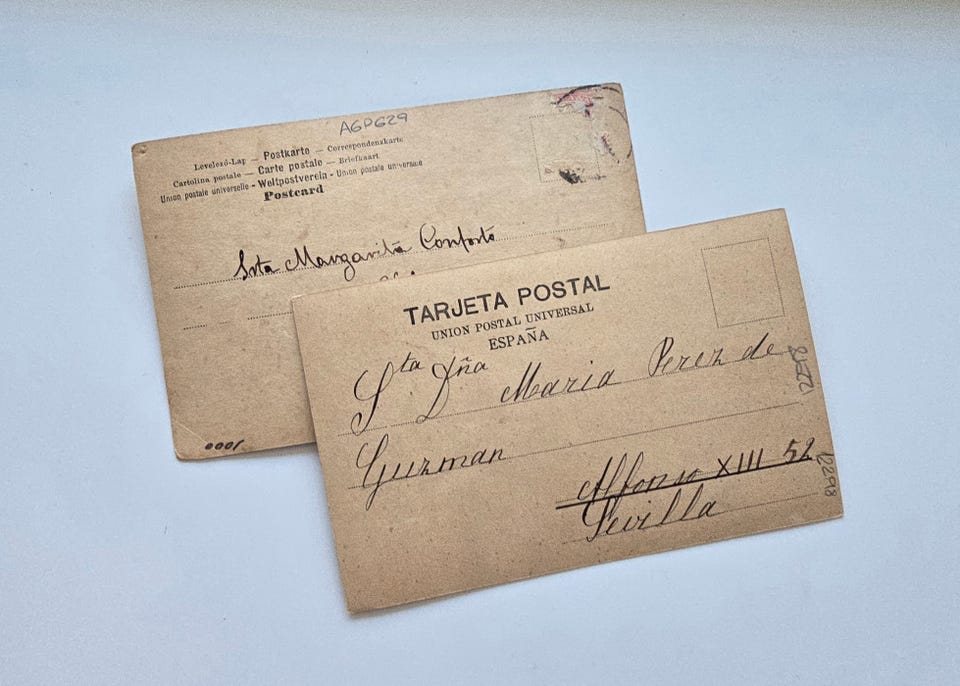 A6P629
Levelező-Lap — Postkarte — Correspondenzkarte
Cartolina postale — Carte postale — Briefkaart
Union postale universelle - Weltpostverein - Union postale universale
Postcard
Srta Margarita Conforto
1000
TARJETA POSTAL
UNION POSTAL UNIVERSAL
ESPAÑA
Sta Dña Maria Perez de
Guzman
Alfonso XIII 52
Sevilla
12298